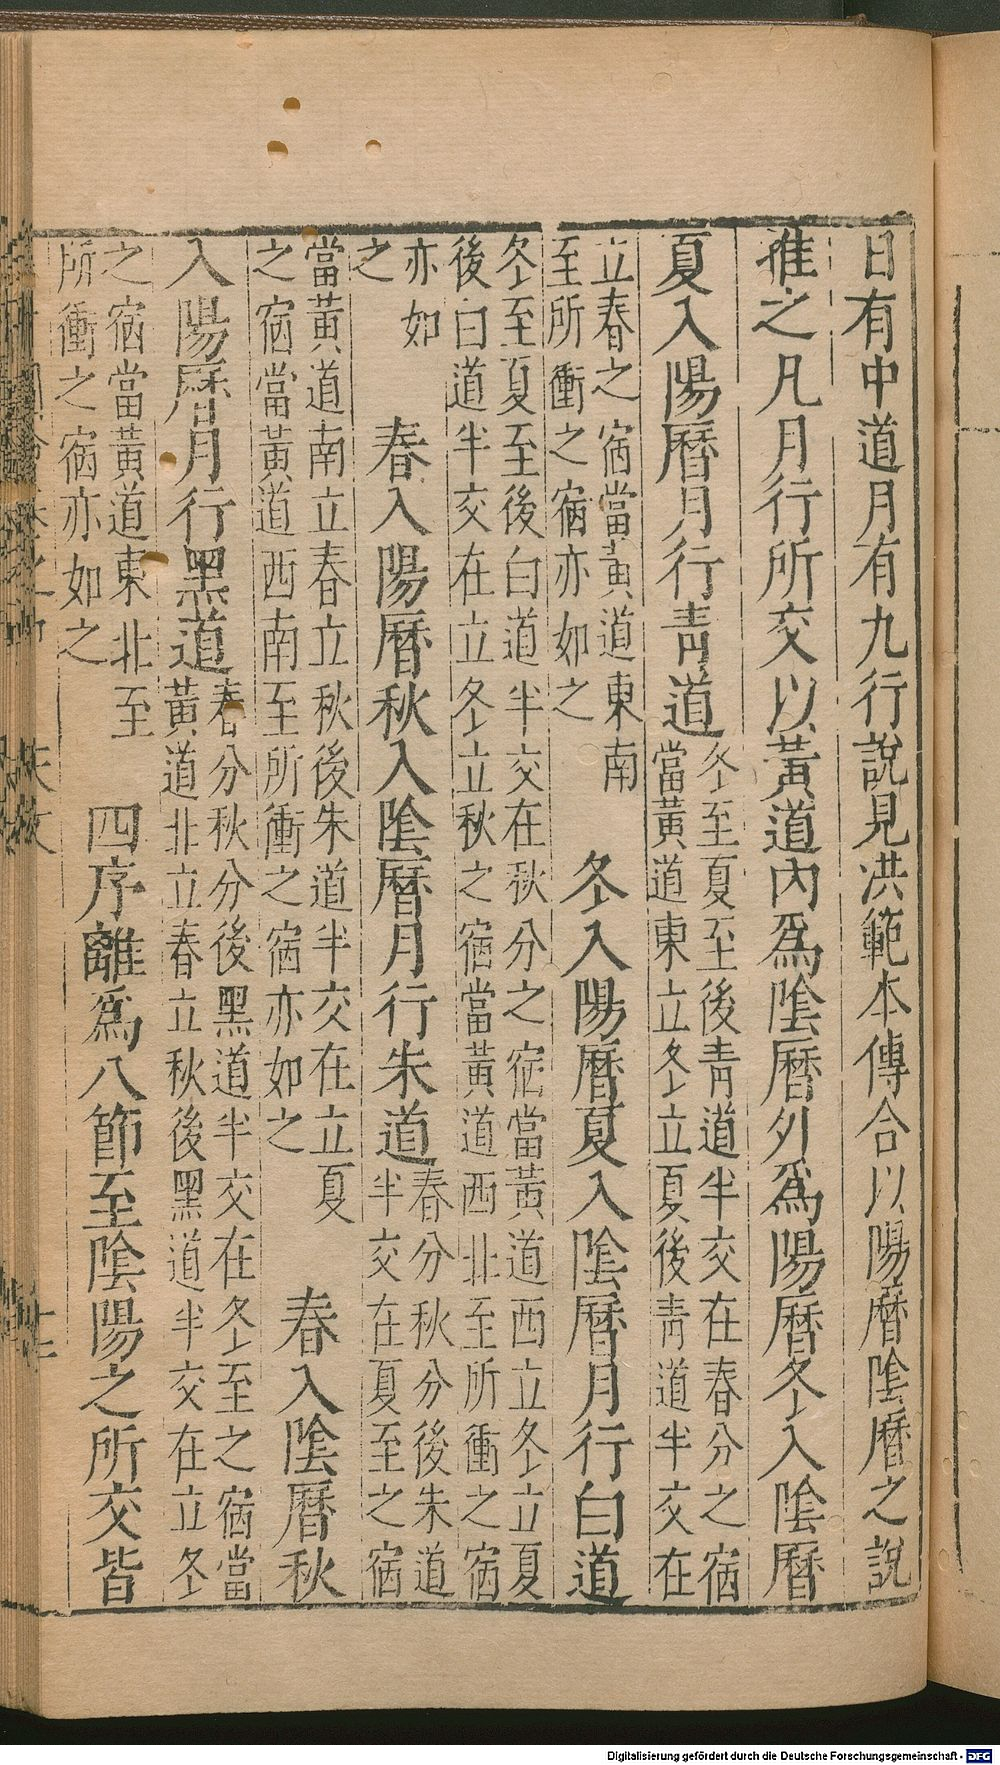 日有中道月有九行說見洪範本傳合以陽曆陰曆之說
推之凡月行所交以黃道內爲陰曆外爲陽曆冬入陰曆
夏入陽曆月行青道
冬至夏至後青道半交在春分之宿
當黃道東立冬立夏後青道半交在
立春之宿當黃道東南
至所衝之宿亦如之
冬入陽曆夏入陰曆月行白道
冬至夏至後白道半交在秋分之宿當黃道西立冬立夏
後白道半交在立冬立秋之宿當黃道西北至所衝之宿
亦如
之
春入陽曆秋入陰曆月行朱道
春分秋分後朱道
半交在夏至之宿
當黃道南立春立秋後朱道半交在立夏
之宿當黃道西南至所衝之宿亦如之
春入陰曆秋
入陽曆月行黑道
春分秋分後黑道半交在冬至之宿當
黃道北立春立秋後黑道半交在立冬
之宿當黃道東北至
所衝之宿亦如之
四序離爲八節至陰陽之所交皆
天文
Digitalisierung gefördert durch die Deutsche Forschungsgemeinschaft - DFG